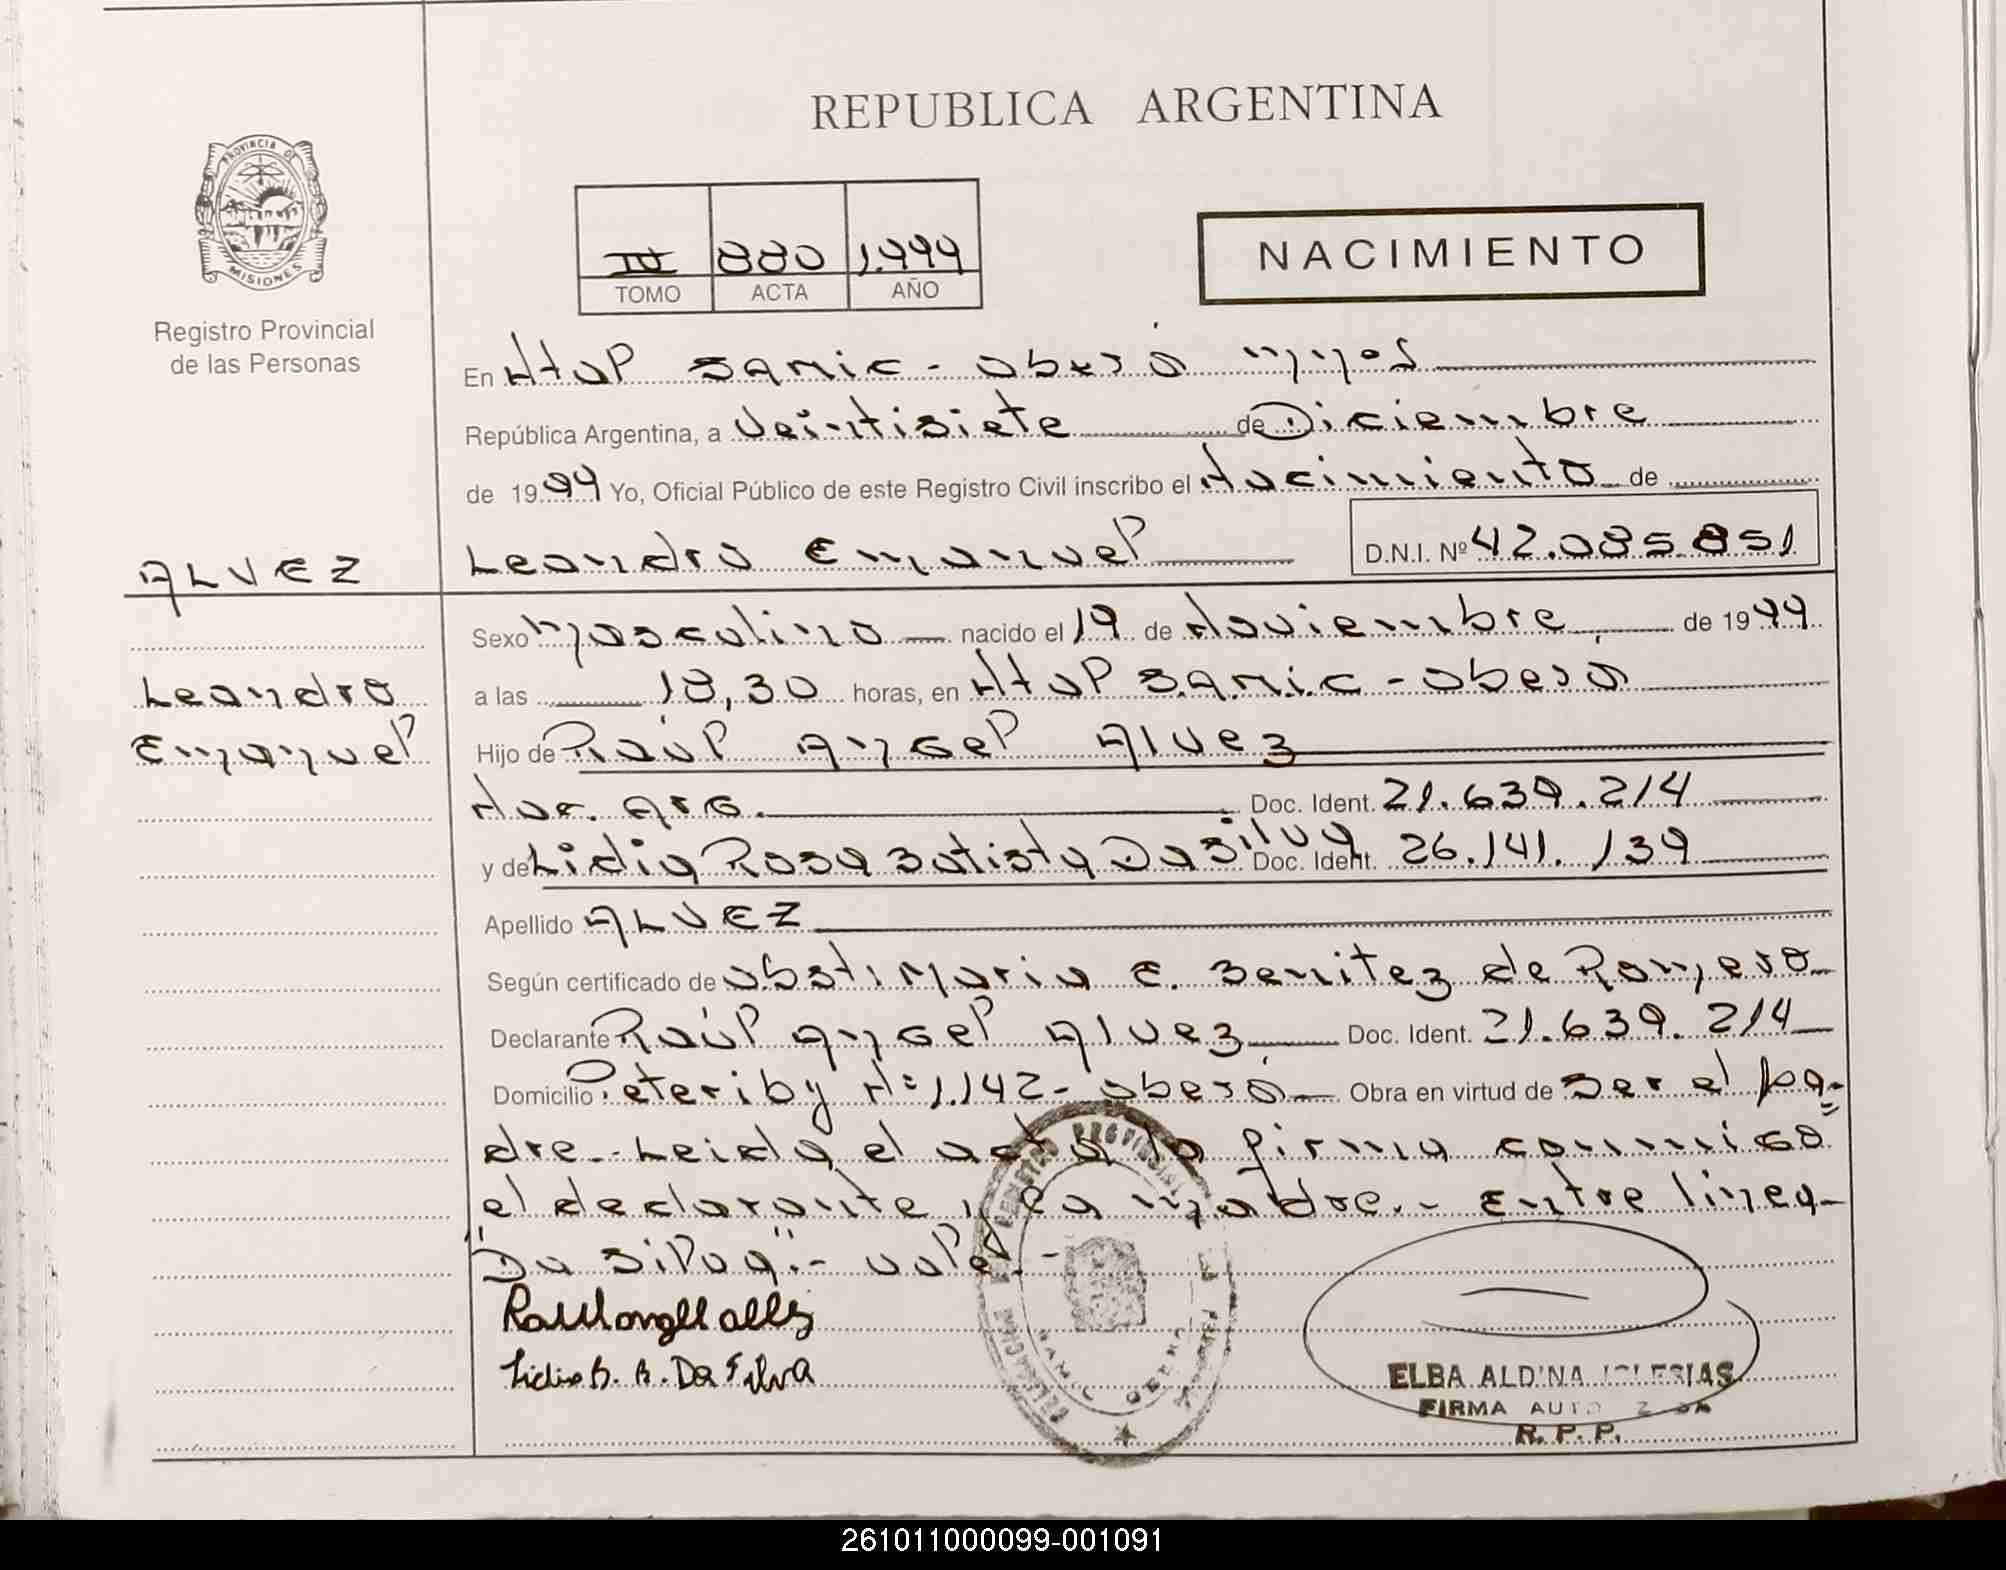 REPUBLICA ARGENTINA
PROVINCIA DE MISIONES
Registro Provincial
de las Personas
IV 880 1.999
TOMO ACTA AÑO
NACIMIENTO
En Htal Samic - Oberá Mnes
República Argentina, a Veintisiete de Diciembre
de 1999 Yo, Oficial Público de este Registro Civil inscribo el Nacimiento de
ALVEZ
Leandro Emanuel
Leandro Emanuel D.N.I. Nº 42.085.851
Sexo Masculino nacido el 19 de Noviembre de 1999
a las 18,30 horas, en Htal Samic - Oberá
Hijo de Raúl Angel Alvez
Nac. Arg. Doc. Ident. 21.639.214
y de Lidia Rosa Batista Da silva Doc. Ident. 26.141.139
Apellido ALVEZ
Según certificado de Obst. Maria E. Benitez de Romero
Declarante Raúl Angel Alvez Doc. Ident. 21.639.214
Domicilio Peteriby Nº 1.142 - Oberá Obra en virtud de Ser el pa=
dre.- Leida el acta la firma conmigo
el declarante y la madre.- Entre linea-
"Da silva".- vale.-
Lidia B. B. Da Silva
ELBA ALDINA IGLESIAS
FIRMA AUTORIZADA
R. P. P.
261011000099-001091